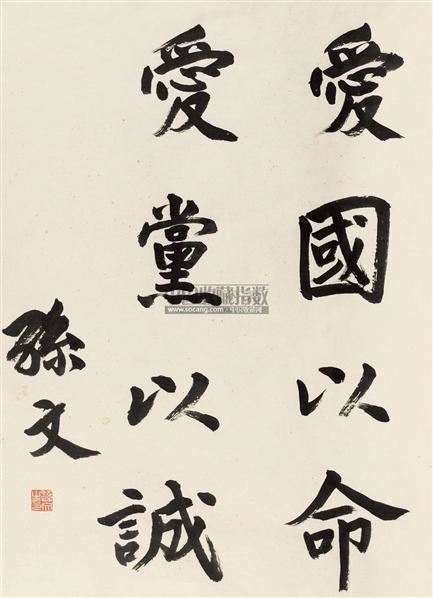 愛國以命
愛黨以誠
孫文
收藏指数
www.socang.com